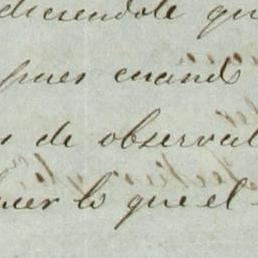 diciendole qu
pues cuando
s de observa
hacer lo que el